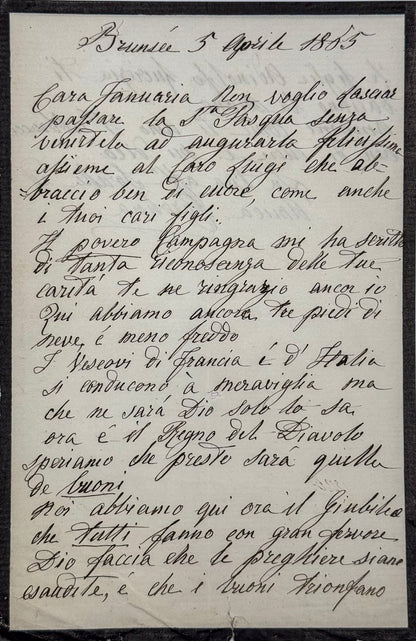 Brunsée 5 Aprile 1865
Cara Januaria Non voglio lasciar
passare la Sta Pasqua senza
venirtela ad augurarla felicissima
assieme al Caro Luigi che ab-
braccio ben di cuore, come anche
i tuoi cari figli.
Il povero Campagna mi ha scritto
di tanta riconoscenza delle tue
carità te ne ringrazio ancor io
Qui abbiamo ancora tre piedi di
neve, é meno freddo
I Vescovi di Francia é d'Italia
si conducono a meraviglia ma
che ne sarà Dio solo lo sa
ora é il Regno del Diavolo
speriamo che presto sarà quella
de buoni
Noi abbiamo qui ora il Giubileo
che tutti fanno con gran fervore
Dio faccia che le preghiere siano
esaudite, é che i buoni trionfano